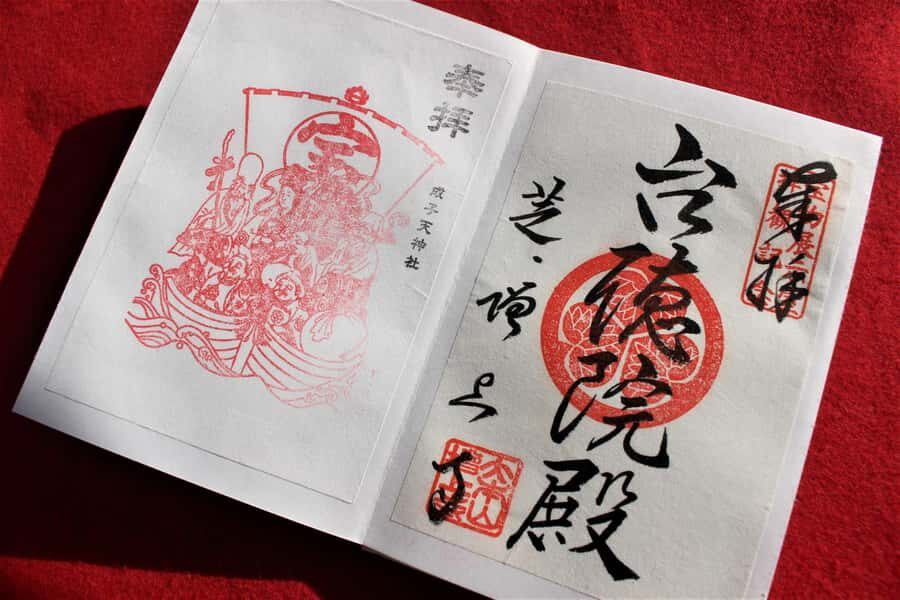 奉拝
台徳院殿
芝・増上寺
大本山
奉拝
成子天神社